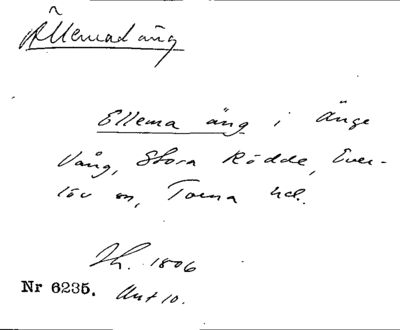 Ällemad äng
Ellema äng i Änge
Vång, Stora Rödde, Ever-
löv sn, Torna hd.
Jh. 1806
Nr 6235. Ant 10.